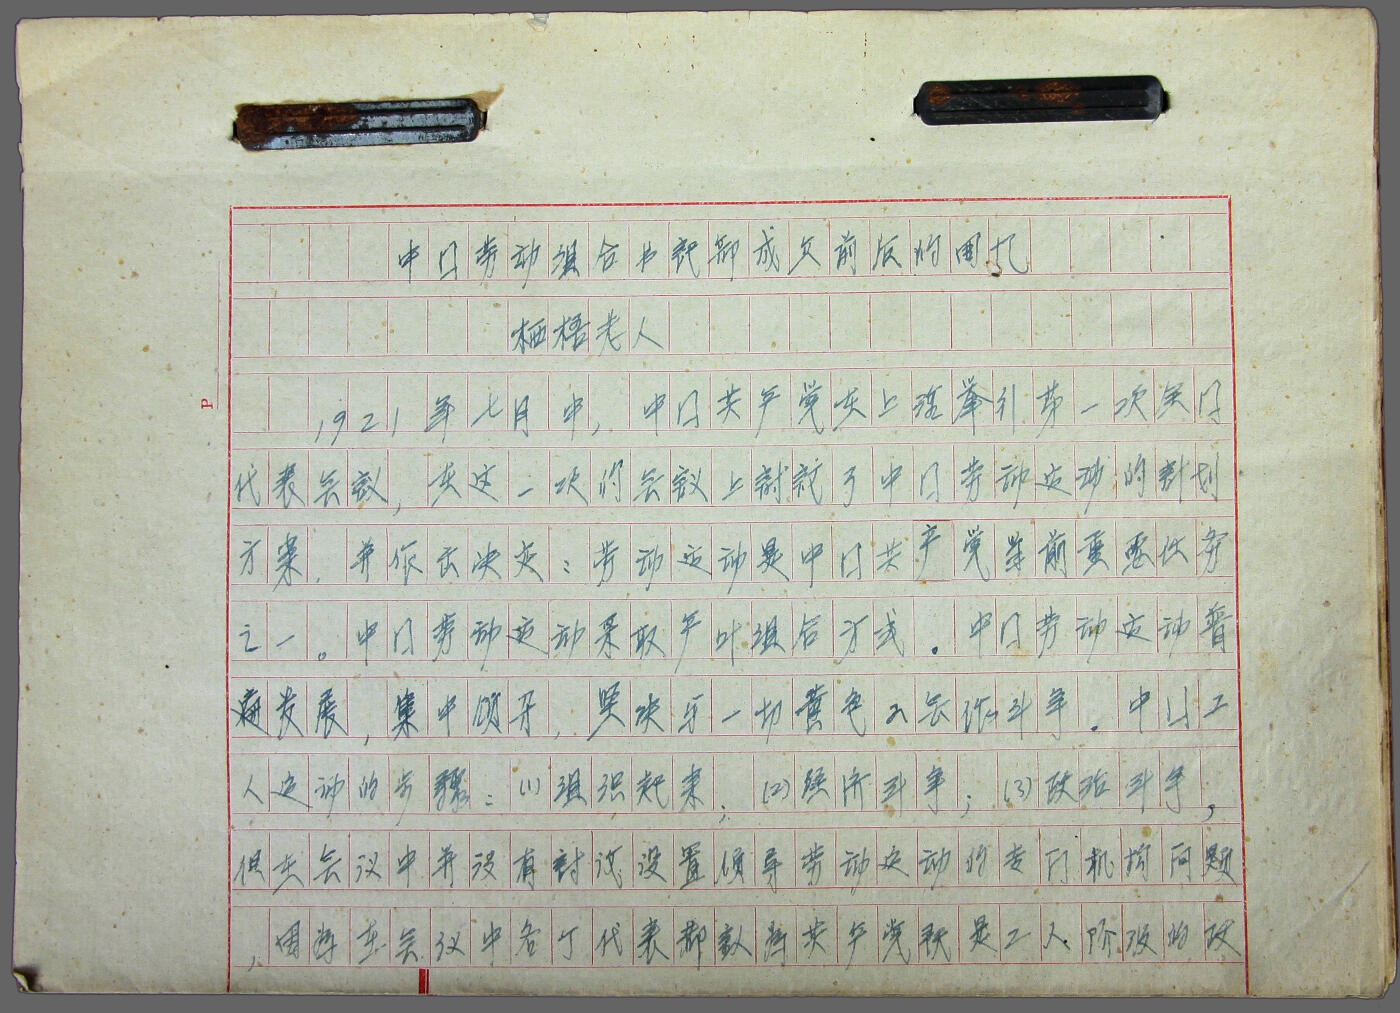 中囗劳动组合书记部成立前后的回忆
栖梧老人
P
1921年七月中,中囗共产党在上海举行第一次全囗
代表会议,在这一次的会议上討論了中囗劳动运动的計划
方案,并作出决定:劳动运动是中囗共产党当前重要任务
之一。中囗劳动运动采取产叶组合方式。中囗劳动运动普
遍发展,集中领导,坚决与一切黄色工会作斗争。中囗工
人运动的步骤:(1)组织起来;(2)经济斗争;(3)政治斗争,
但在会议中并没有討论设置领导劳动运动的专门机构问题
,因为在会议中各个代表都认为共产党既是工人阶级的政